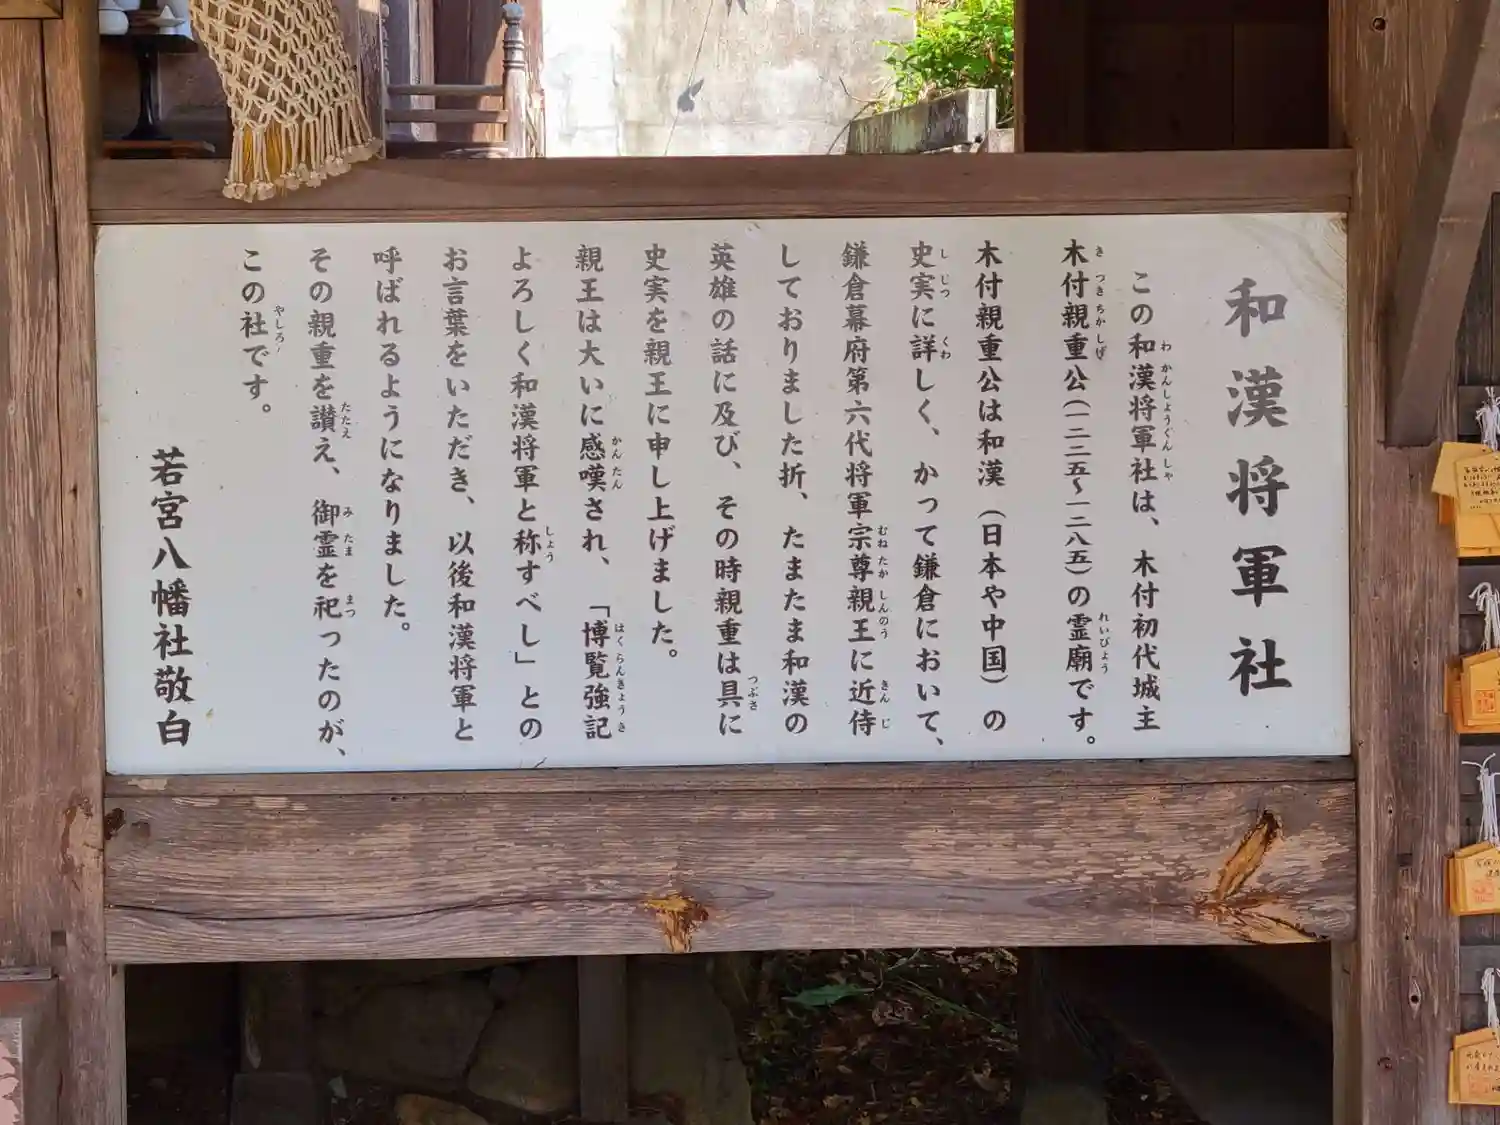 和漢将軍社
この和漢将軍社は、木付初代城主
木付親重公(一二二五～一二八五)の霊廟です。
木付親重公は和漢(日本や中国)の
史実に詳しく、かって鎌倉において、
鎌倉幕府第六代将軍宗尊親王に近侍
しておりました折、たまたま和漢の
英雄の話に及び、その時親重は具に
史実を親王に申し上げました。
親王は大いに感嘆され、「博覧強記
よろしく和漢将軍と称すべし」との
お言葉をいただき、以後和漢将軍と
呼ばれるようになりました。
その親重を讃え、御霊を祀ったのが、
この社です。
若宮八幡社敬白